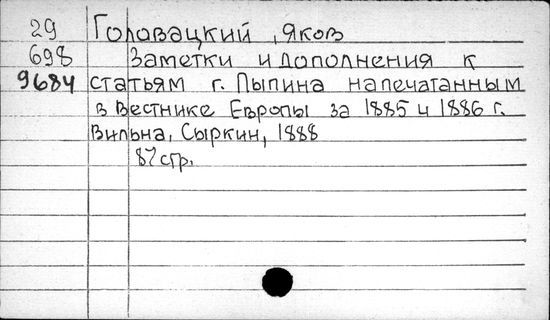 29 Головацкий, Яков
698 Заметки и дополнения к
9684 статьям г. Пыпина напечатанным
в Вестнике Европы за 1885 и 1886 г.
Вильна, Сыркин, 1888
87 стр.